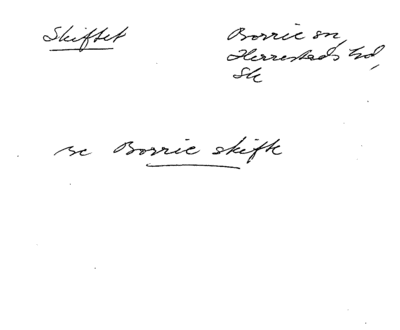 Skiftet
Borrie sn,
Herrestads hd,
Sk
se Borrie skifte